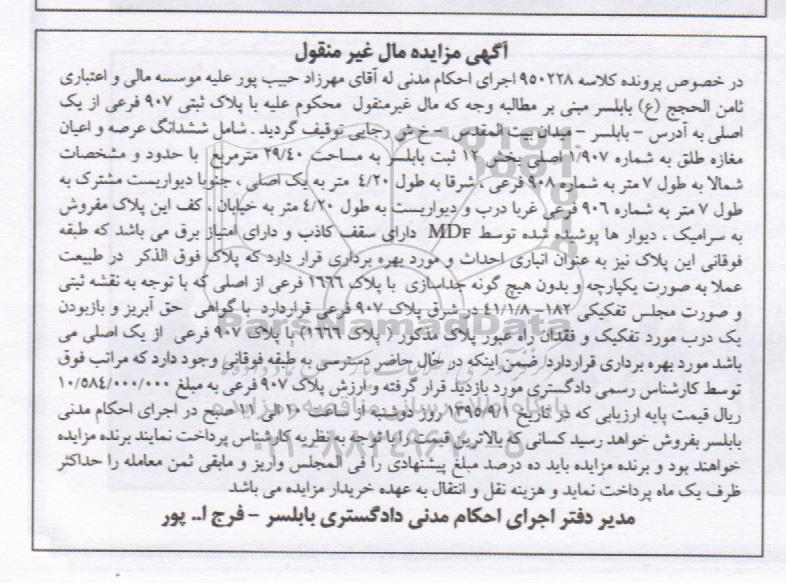 آگهی مزایده مال غیر منقول
در خصوص پرونده کلاسه ۹۵۰۲۲۸ اجرای احکام مدنی له آقای مهرزاد حبیب پور علیه موسسه مالی و اعتباری
ثامن الحجج (ع) بابلسر مبنی بر مطالبه وجه که مال غیرمنقول محکوم علیه با پلاک ثبتی ۹۰۷ فرعی از یک
اصلی به آدرس – بابلسر – میدان بیت المقدس – خ ش رجایی توقیف گردید . شامل ششدانگ عرصه و اعیان
مغازه طلق به شماره ۱/۹۰۷ اصلی بخش ۱۲ ثبت بابلسر به مساحت ۲۹/۴۰ مترمربع با حدود و مشخصات
شمالا به طول ۷ متر به شماره ۹۰۸ فرعی ، شرقا به طول ۴/۲۰ متر به یک اصلی ، جنوبا دیواریست مشترک به
طول ۷ متر به شماره ۹۰۶ فرعی غربا درب و دیواریست به طول ۴/۲۰ متر به خیابان . کف این پلاک مفروش
به سرامیک ، دیوار ها پوشیده شده توسط MDF دارای سقف کاذب و دارای امتیاز برق می باشد که طبقه
فوقانی این پلاک نیز به عنوان انباری احداث و مورد بهره برداری قرار دارد که پلاک فوق الذکر در طبیعت
عملا به صورت یکپارچه و بدون هیچ گونه جداسازی با پلاک ۱۶۶۶ فرعی از اصلی که با توجه به نقشه ثبتی
و صورت مجلس تفکیکی ۱۸۲– ۴۱/۱/۸ در شرق پلاک ۹۰۷ فرعی قراردارد با گواهی حق آبریز و بازبودن
یک درب مورد تفکیک و فقدان راه عبور پلاک مذکور ( پلاک ۱۶۶۶) با پلاک ۹۰۷ فرعی از یک اصلی می
باشد مورد بهره برداری قراردارد ضمن اینکه در حال حاضر دسترسی به طبقه فوقانی وجود دارد که مراتب فوق
توسط کارشناس رسمی دادگستری مورد بازدید قرار گرفته و ارزش پلاک ۹۰۷ فرعی به مبلغ ۱۰/۵۸۴/۰۰۰/۰۰۰
ریال قیمت پایه ارزیابی که در تاریخ ۱۳۹۵/۹/۱ روز دوشنبه از ساعت ۱۰ الی ۱۱ صبح در اجرای احکام مدنی
بابلسر بفروش خواهد رسید کسانی که بالاترین قیمت را با توجه به نظریه کارشناس پرداخت نمایند برنده مزایده
خواهند بود و برنده مزایده باید ده درصد مبلغ پیشنهادی را فی المجلس واریز و مابقی ثمن معامله را حداکثر
ظرف یک ماه پرداخت نماید و هزینه نقل و انتقال به عهده خریدار مزایده می باشد
مدیر دفتر اجرای احکام مدنی دادگستری بابلسر – فرج ا.. پور
ParsNamadData
۰۲۱-۸۸۳۴۹۶۷۰-۵